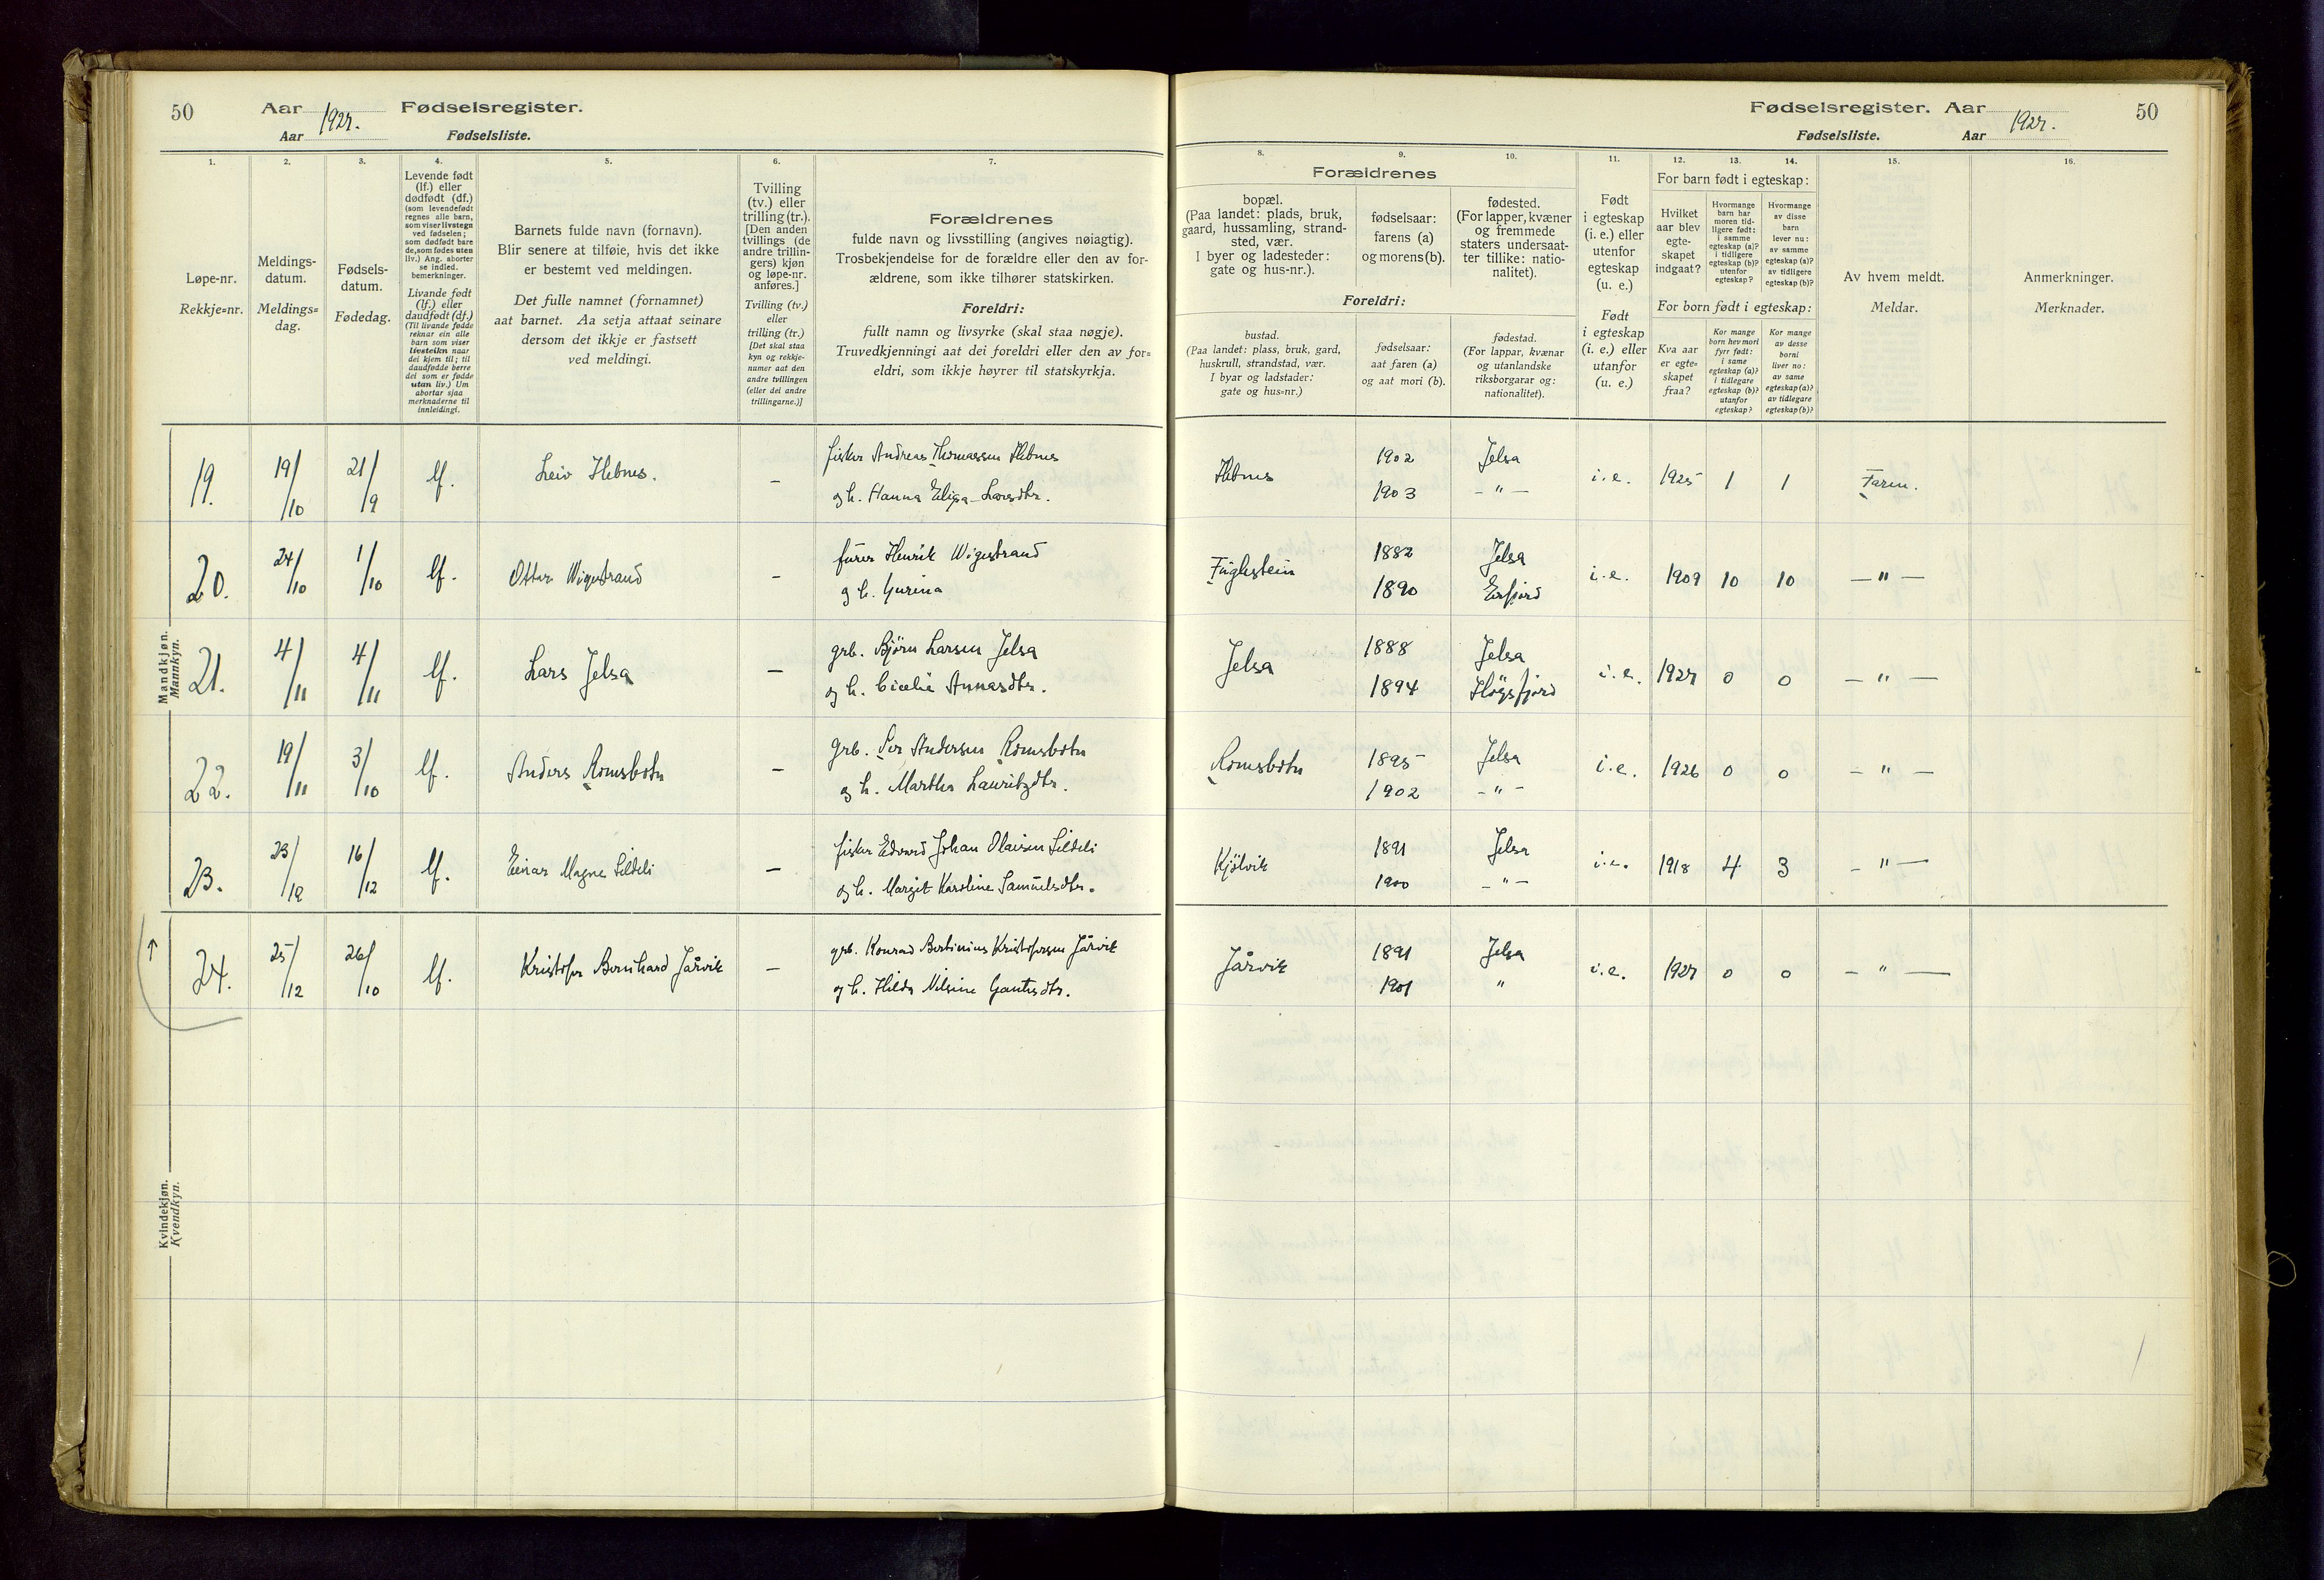 50
Aar 1927.
Fødselsregister.
Aar
Fødselsliste.
Fødselsregister. Aar
50
1927.
Fødselsliste. Aar
1.
2.
3.
4.
5.
6.
7.
8.
9.
10.
11.
12.
13.
14.
15.
16.
Løpe-nr.
Rekkje=nr.
Meldings-
datum.
Meldings=
dag.
Fødsels-
datum.
Fødedag.
Levende født
(lf.) eller
dødfødt (df.)
(som levendefødt
regnes alle barn,
som viser livstegn
ved fødselen;
som dødfødt bare
de, som fødes uten
liv.) Ang. aborter
se indled.
bemerkninger.
Livande født
(lf.) eller
daudfødt (df.)
(Til livande fødde
reknar ein alle
barn som viser
livsteikn naar
dei kjem til; til
daudfødde berre
dei som er fødde
utan liv.) Um
abortar sjaa
merknaderne til
innleiding).
Barnets fulde navn (fornavn).
Blir senere at tilføie, hvis det ikke
er bestemt ved meldingen.
Det fulle namnet (fornamnet)
aat barnet. Aa setja attaat seinare
dersom det ikkje er fastsett
ved meldingi.
Tvilling
(tv.) eller
trilling (tr.).
[Den anden
tvillings (de
andre trillin-
gers) kjøn
og løpe-nr.
anføres.]
Tvilling (tv.)
eller
trilling (tr.)
[Det skal staa
kyn og rekkje-
numer aat den
andre tvillingen
(eller dei andre
trillingarne.)]
Forældrenes
fulde navn og livsstilling (angives nøiagtig).
Trosbekjendelse for de forældre eller den av for-
ældrene, som ikke tilhører statskirken.
Foreldri:
fullt namn og livsyrke (skal staa nøgje).
Truvedkjenningi aat dei foreldri eller den av for=
eldri, som ikkje høyrer til statskyrkja.
Forældrenes
bopæl.
(Paa landet: plads, bruk,
gaard, hussamling, strand-
sted, vær.
I byer og ladesteder:
gate og hus-nr.).
fødselsaar:
farens (a)
og morens (b).
fødested.
(For lapper, kvæner
og fremmede
staters undersaat-
ter tillike: natio-
nalitet).
Foreldri:
bustad.
(Paa landet: plass, bruk, gard,
huskrull, strandstad, vær.
I byar og ladstader:
gate og hus=nr.)
fødselsaar:
aat faren (a)
og aat mori (b).
fødestad.
(For lappar, kvænar
og utanlandske
riksborgarar og:
nationalitet).
Født
i egteskap
(i. e.) eller
utenfor
egteskap
(u. e.)
Født
i egteskap
(i. e.) eller
utanfor
(u. e.)
For barn født i egteskap:
Hvilket
aar blev
egte-
skapet
indgaat?
Hvormange
barn har
moren tid-
ligere født:
i samme
egteskap (a)?
i tidligere
egteskap (b)?
utenfor
egteskap?
Hvormange
av disse
barn
lever nu:
av samme
egteskap (a)?
av tidligere
egteskap (b)?
For born født i egteskap:
Kva aar
er egte-
skapet
fraa?
Kor mange
born hev mori
fyrr født:
i same
egteskap (a)?
i tidlegare
egteskap (b)?
utanfor
egteskap?
Kor mange
av desse
borni
liver no:
av same
egteskap (a)?
av tidlegare
egteskap (b)?
Av hvem meldt.
Meldar.
Anmerkninger.
Merknader.
Mandkjøn.
Mannkyn.
19. 19/10 21/9 lf. Leiv Hebnes. – fisker Andreas Thomassen Hebnes
og h. Hanna Elisa Larsdtr.
Hebnes 1902 1903 Jelsa – " – i. e. 1925 1 1 Faren.
20. 24/10 1/10 lf. Ottar Wigestrand – fører Henrik Wigestrand
og h. Gurina
Fuglestein 1882 1890 Jelsa Erfjord i. e. 1909 10 10 – " –
21. 4/11 4/11 lf. Lars Jelsa – grb. Bjørn Larsen Jelsa
og h. Cicelie Annasdtr.
Jelsa 1888 1894 Jelsa Høgsfjord i. e. 1927 0 0 – " –
22. 19/11 3/10 lf. Anders Romsbotn – grb. Per Andersen Romsbotn
og h. Martha Lauritzdtr.
Romsbotn 1895 1902 Jelsa – " – i. e. 1926 0 0 – " –
23. 23/12 16/12 lf. Einar Magne Lildeli – fisker Edvard Johan Olaisen Lildeli
og h. Margit Karoline Samuelsdtr.
Kjølvik 1891 1900 Jelsa – " – i. e. 1918 4 3 – " –
24. 25/12 26/10 lf. Kristofer Bernhard Jårvik – grb. Konrad Bertinius Kristofersen Jårvik
og h. Hilda Nilsine Gautesdtr.
Jårvik 1891 1901 Jelsa " i. e. 1927 0 0 – " –
Kvindekjøn.
Kvendkyn.